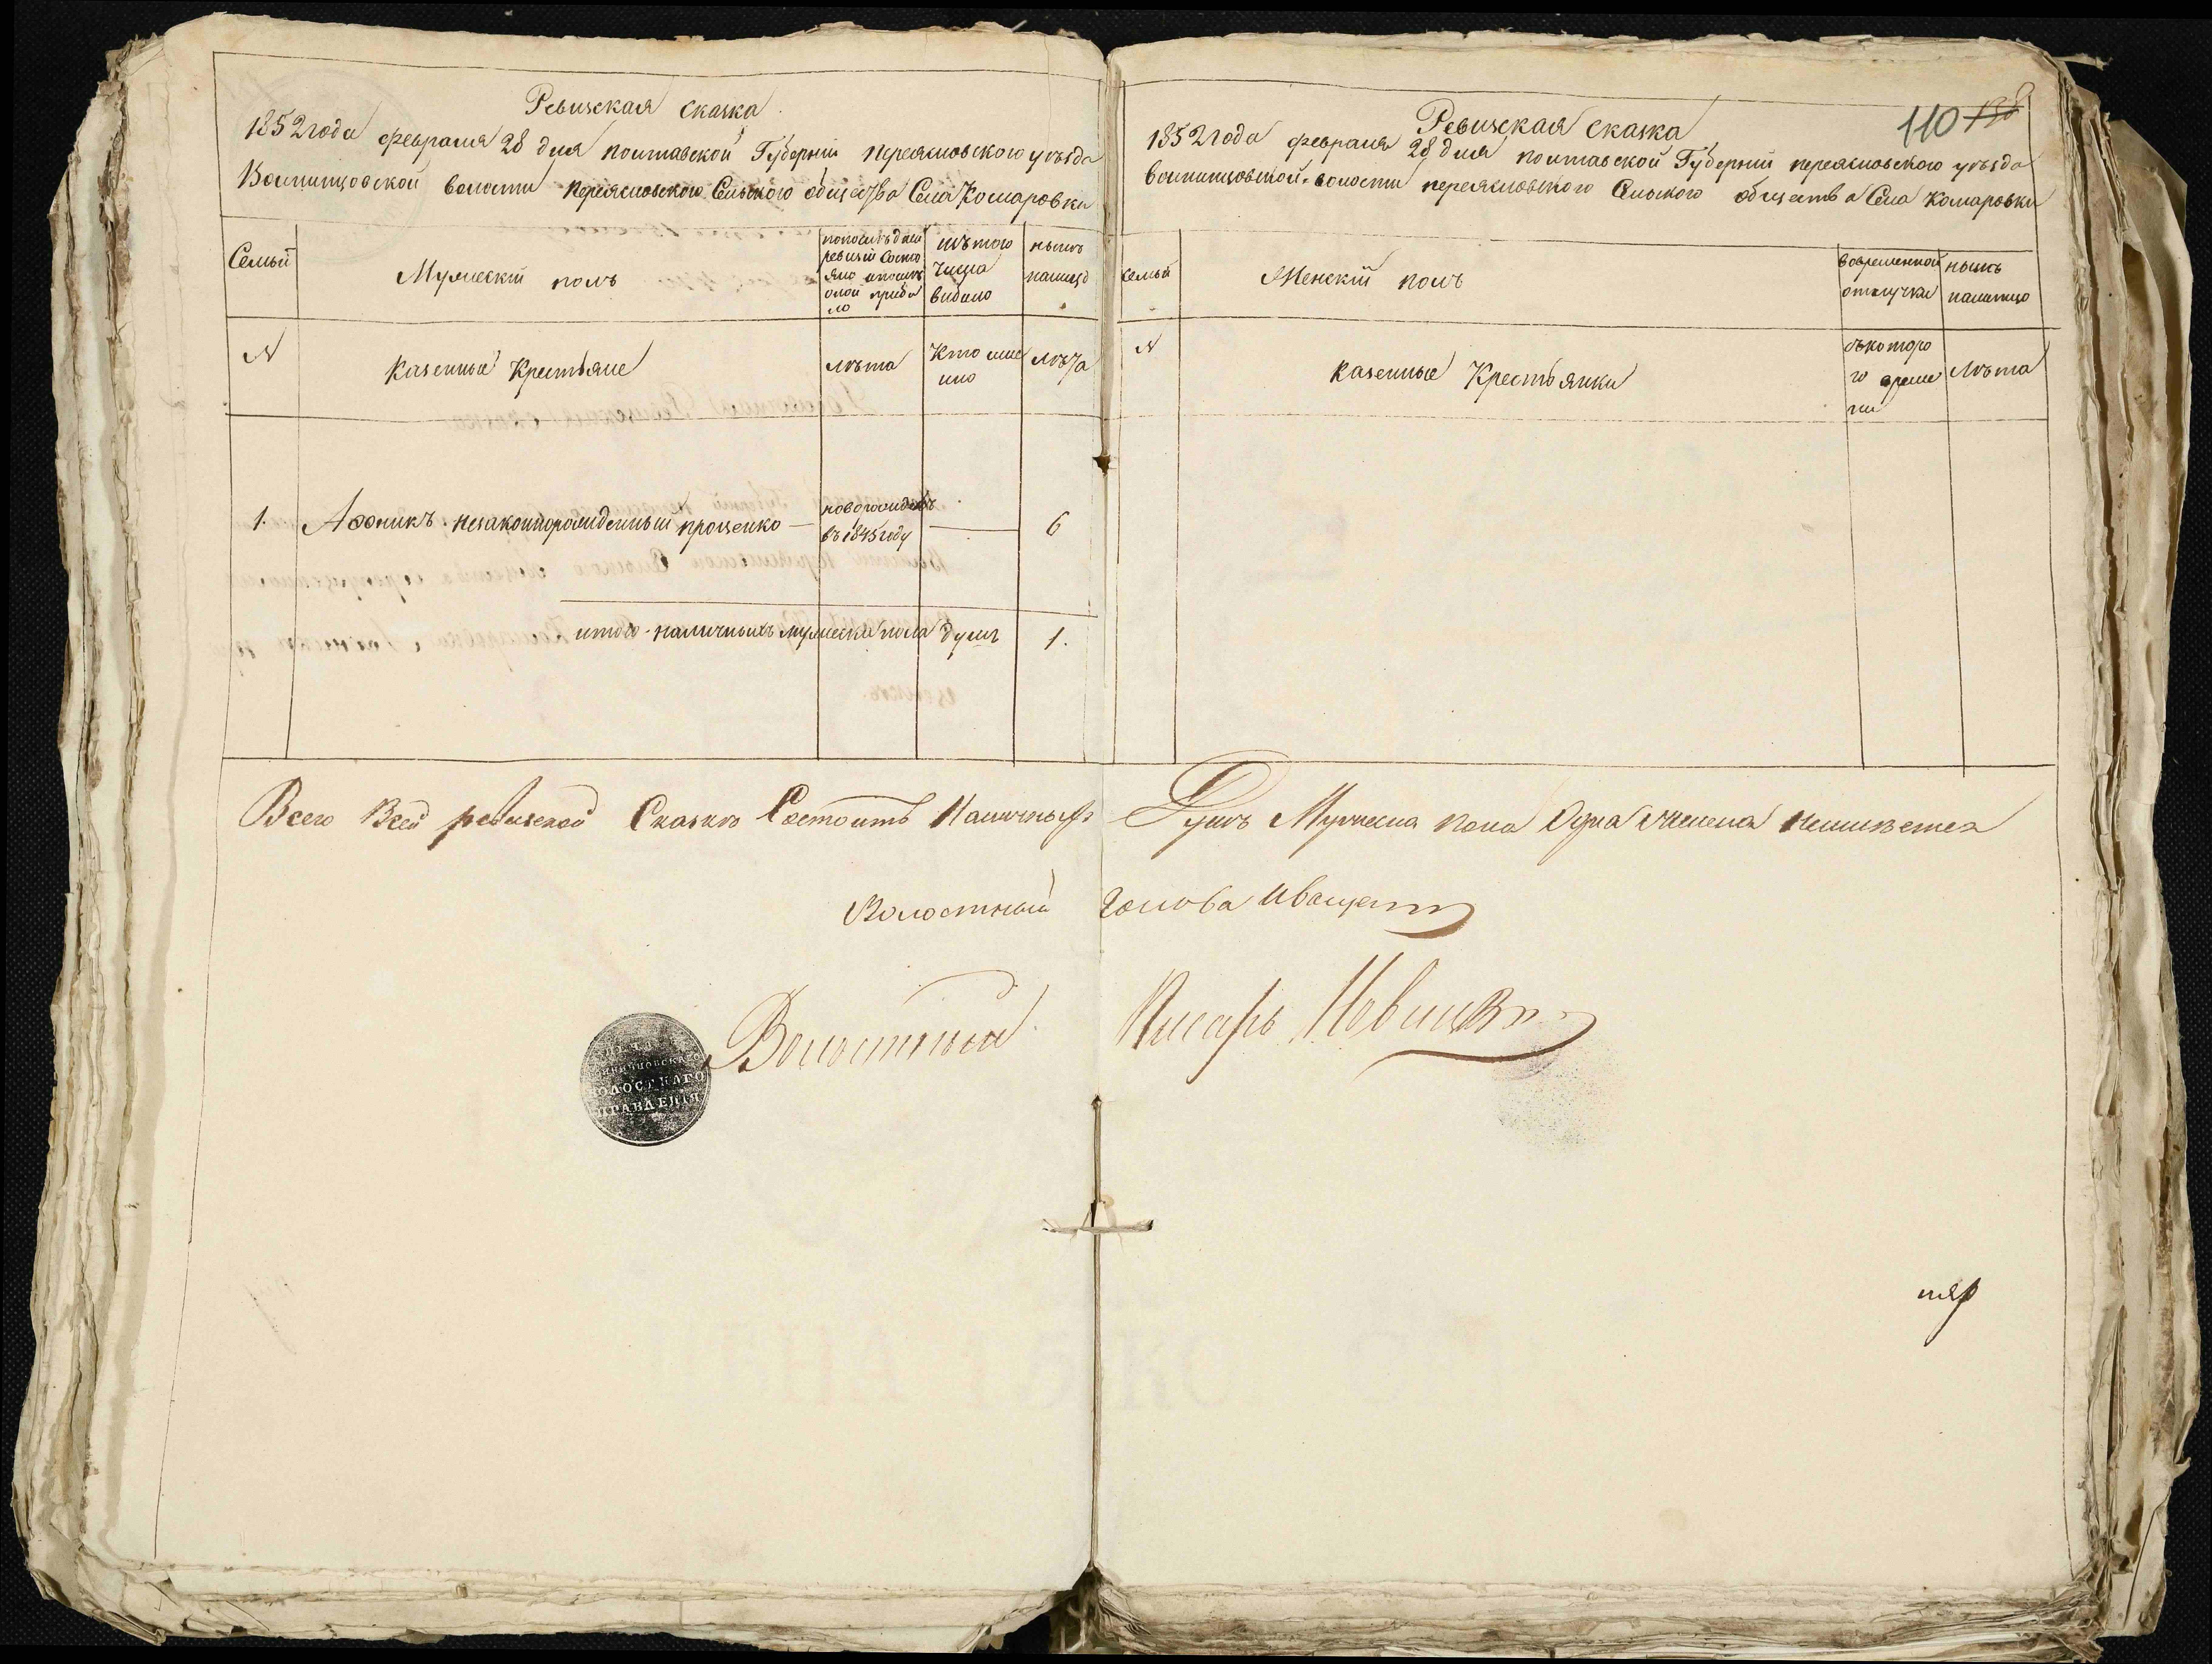 Ревизская сказка
1852 года февраля 28 дня полтавской Губерніи переясловского уѣзда
волости переясловского Сельского общества Села Комаровки
Семьи
Мужескій полъ
попослѣдней
ревизіи состо
яло и послѣ
оной прибы
ло
изъ того
числа
выбыло
нынѣ
налицо
N
казенные Крестьяне
лѣта
Кто имено
лѣта
1. незаконнорожденный проценко
новорожденъ
въ 1845 году
6
итого наличныхъ мужеска пола душъ 1.
110
Ревизская сказка
1852 года февраля 28 дня полтавской Губерніи переясловского уѣзда
волости переясловского Сельского общества Села Комаровки
семьи
Женскій полъ
вовременной
отлучки
нынѣ
налицо
N
казенные Крестьянки
съ которо
го време
ни
лѣта
Всего Всей ревизской Сказкѣ Состоитъ Наличныхъ Душъ Мужеска пола Одна а женска неимѣется
Волостный голова Иващенко
Волостный Писарь Новицкій
ВОЛОСТНАГО
ПРАВЛЕНІЯ